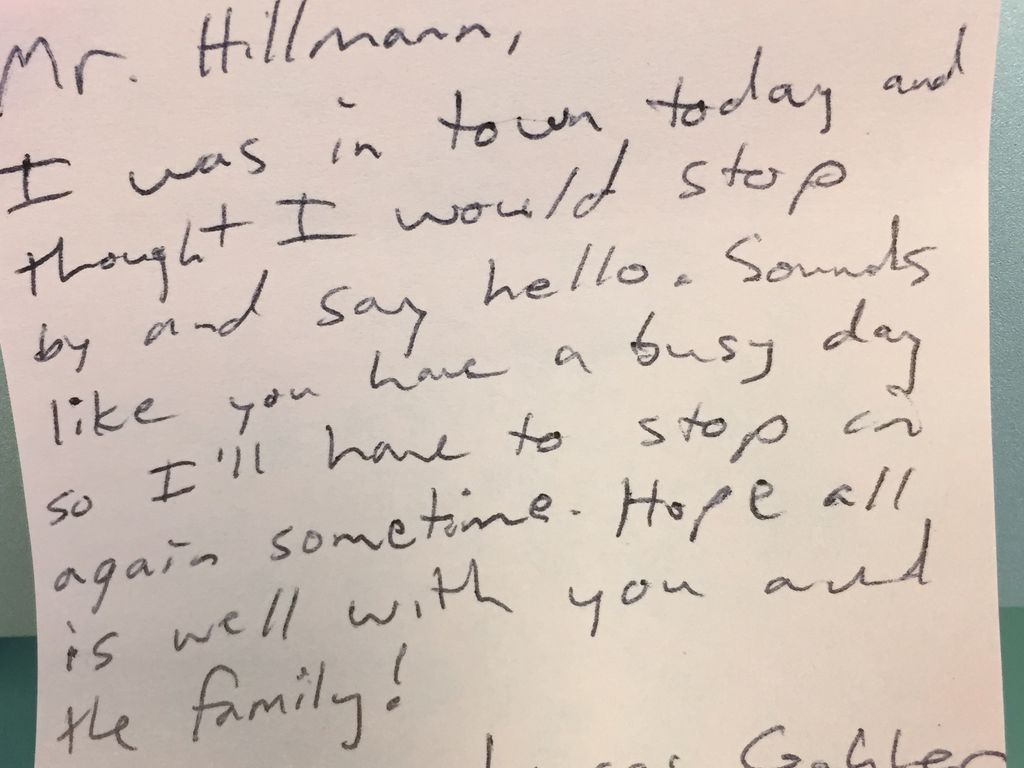 Mr. Hillmann,
I was in town today and
thought I would stop
by and say hello. Sounds
like you have a busy day
so I'll have to stop in
again sometime. Hope all
is well with you and
the family!